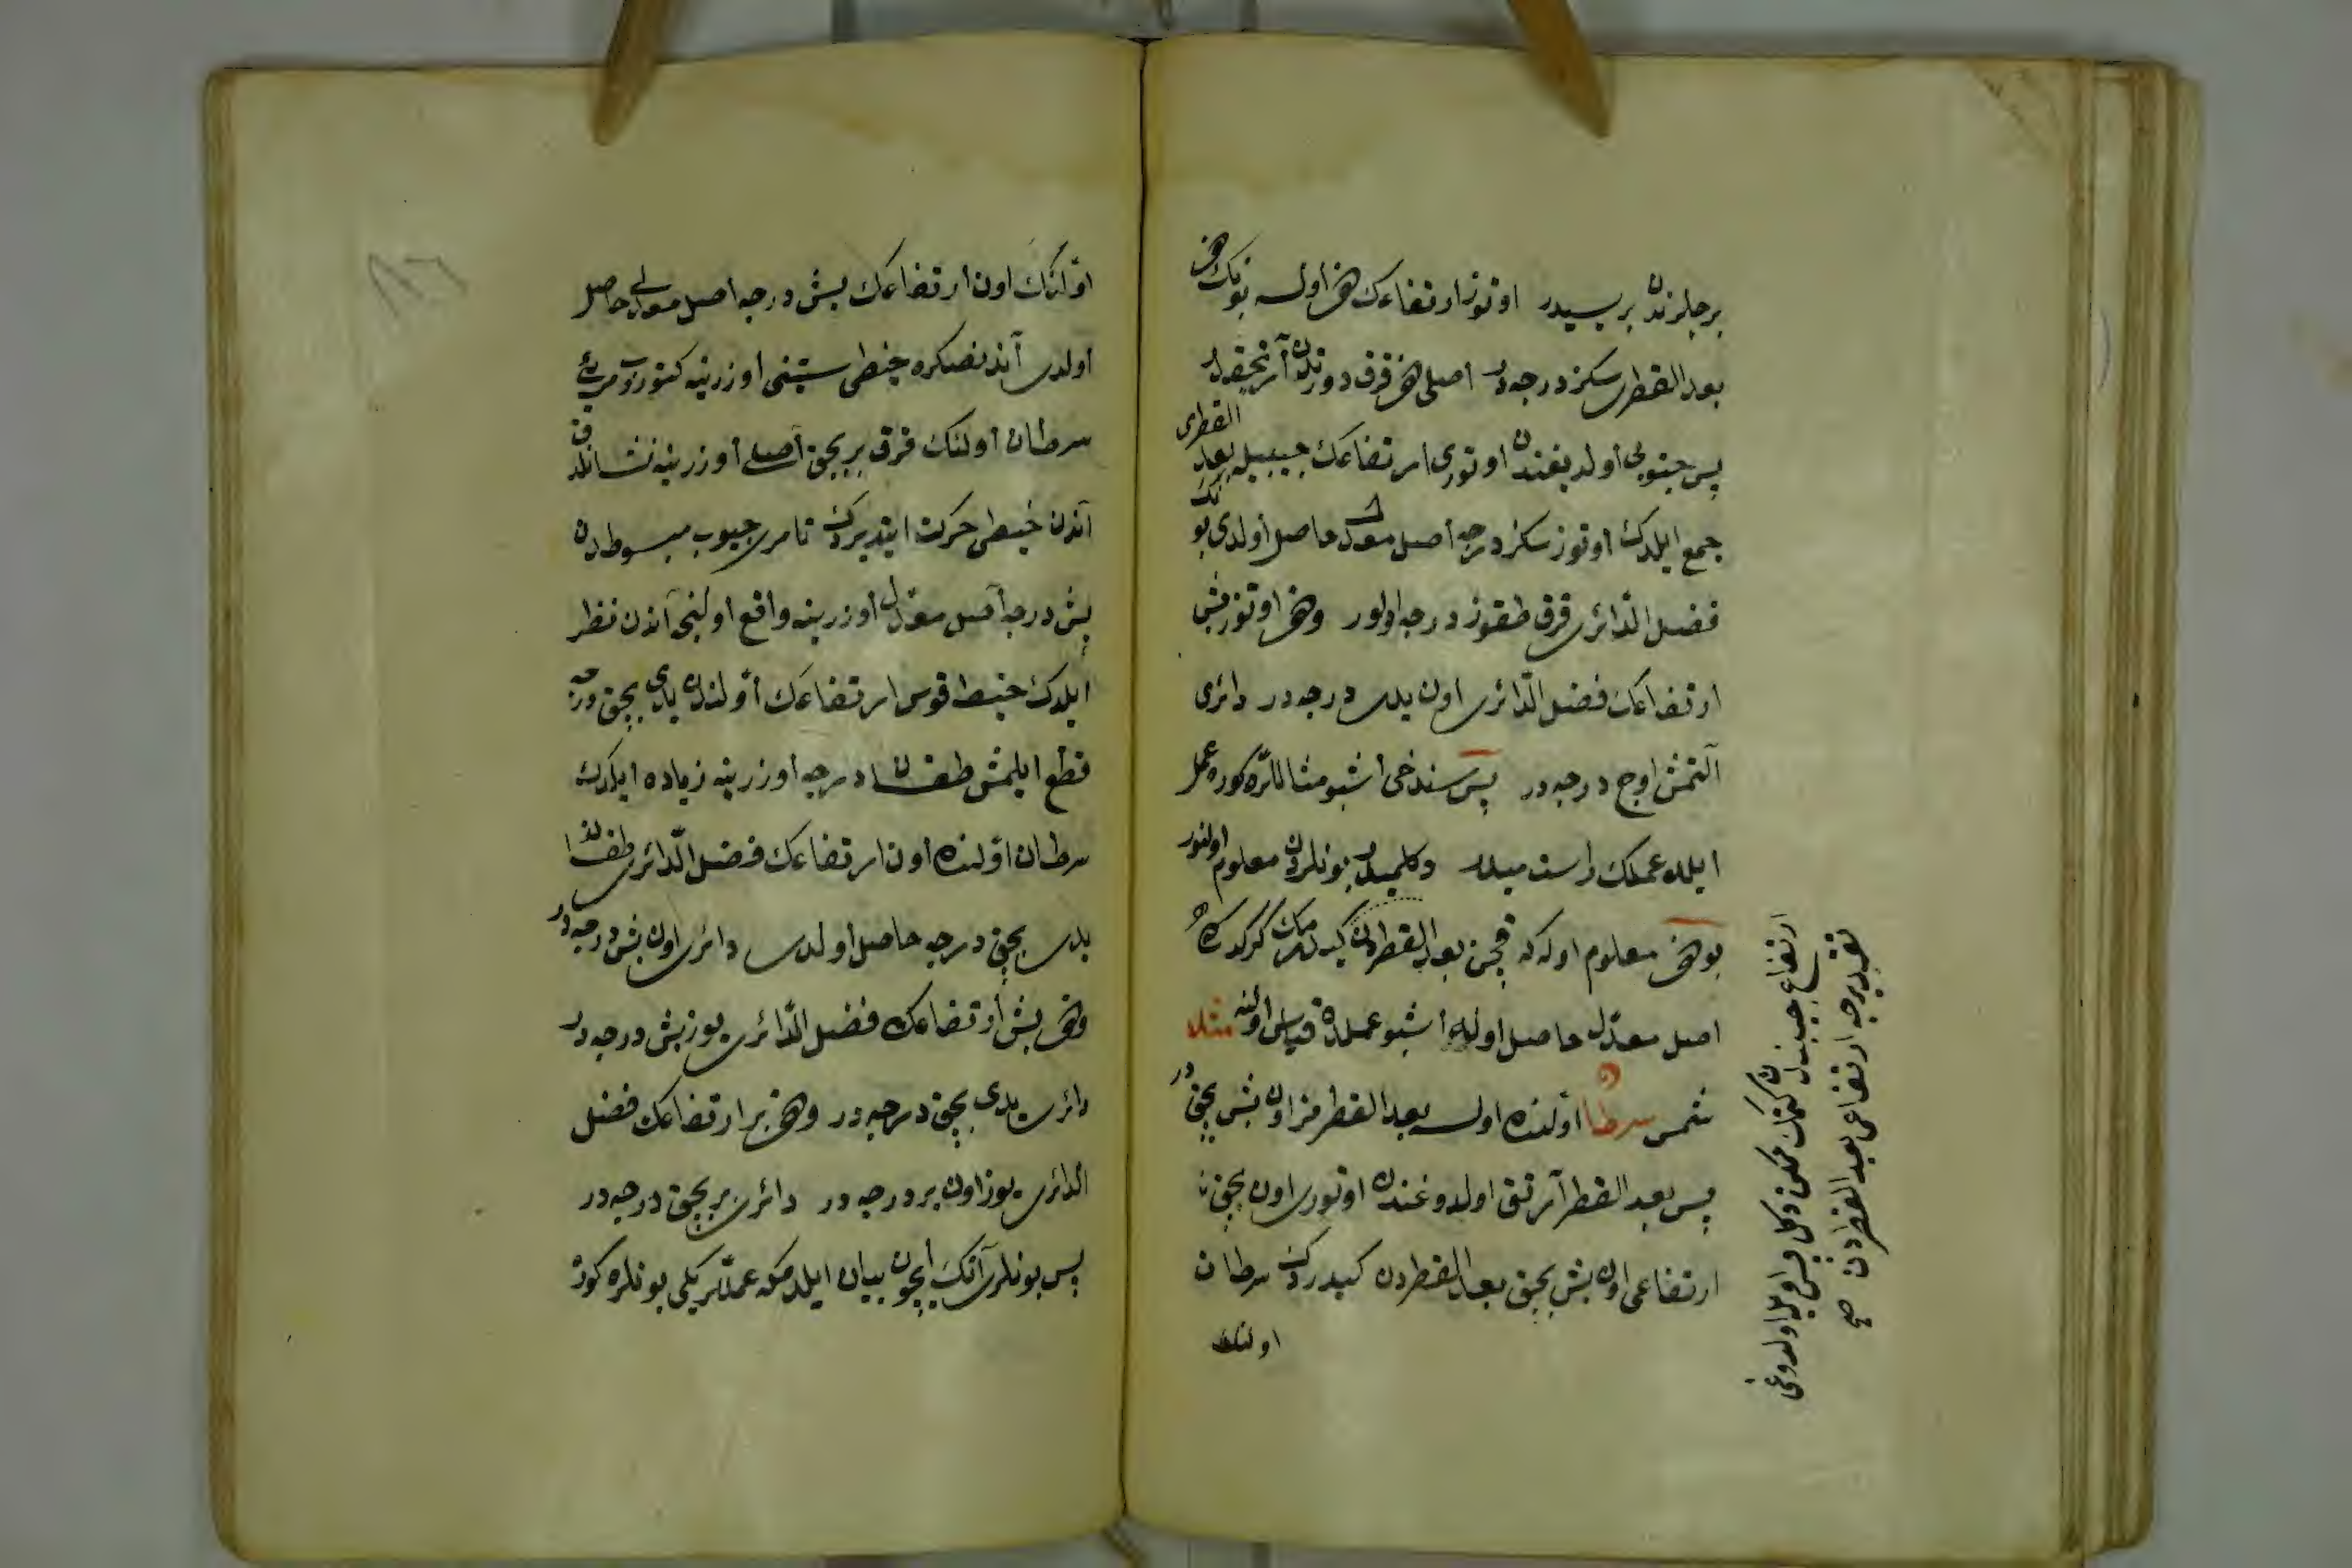 برجلرندن بریسیدر اوتوز ارتفاعك دخی اولسه بونك دخی
بعد القطری سكز درجه در اصلی دخی قرق دورتدن آز نجقدر
پس جنوبی اولدیغندن اوتوری ارتفاعك جیبیله بعد القطری
جمع ایلدك اوتوز سكز درجه اصل معدل حاصل اولدی بونك
فضل الدائری قرق طقوز درجه اولور ودخی اوتوز بش
ارتفاعك فضل الدائری اون یدی درجه در دائری
آلتمش اوچ درجه در پس سندخی اشبو مثاللره كوره عمل
ایله عملك راست میدر وكلمیدر بونلردن معلوم اولنور
بو دخی معلوم اوله كه قچن بعد القطردن كیدرمك كركدركه
اصل معدل حاصل اوله اشبو عملده قیاس اولنه مثلا
شمس سرطان اولنده اولسه بعد القطرمز اون بش بچقدر
پس بعد القطر آرتق اولدوغندن اوتوری اون بچق
ارتفاعی اون بش بچق بعد القطردن كیدردك سرطان
اولنك
ارتفاع جیبندن كتمك ممكن دكل پس اویله اولدوغی
تقدیرجه ارتفاعی بعد القطردن صح
اولنك اون ارتفاعك بش درجه اصل معدلی حاصل
اولدی آندنصكره خیطی ستینی اوزرینه كتوروب مریئ
سرطان اولنك قرق بر بچق اصلی اوزرینه نشانلدق
آندن خیطی حركت ایتدیردك تا مری جیوب مبسوطدن
بش درجه اصل معدل اوزرینه واقع اولنجی آندن نظر
ایلدك خیط قوس ارتفاعك اولندن یدی بچق درجه
قطع ایلمش طقسان درجه اوزرینه زیاده ایلدك
سرطان اولنده اون ارتفاعك فضل الدائری طقسان
یدی بچق درجه حاصل اولدی دائری اون بش درجه در
ودخی بش ارتفاعك فضل الدائری یوز بش درجه در
دائری یدی بچق درجه در ودخی بر ارتفاعك فضل
الدائری یوز اون بر درجه در دائری بر بچق درجه در
پس بونلری آنك ایچون بیان ایلدم كه عمللریكی بونلره كوره